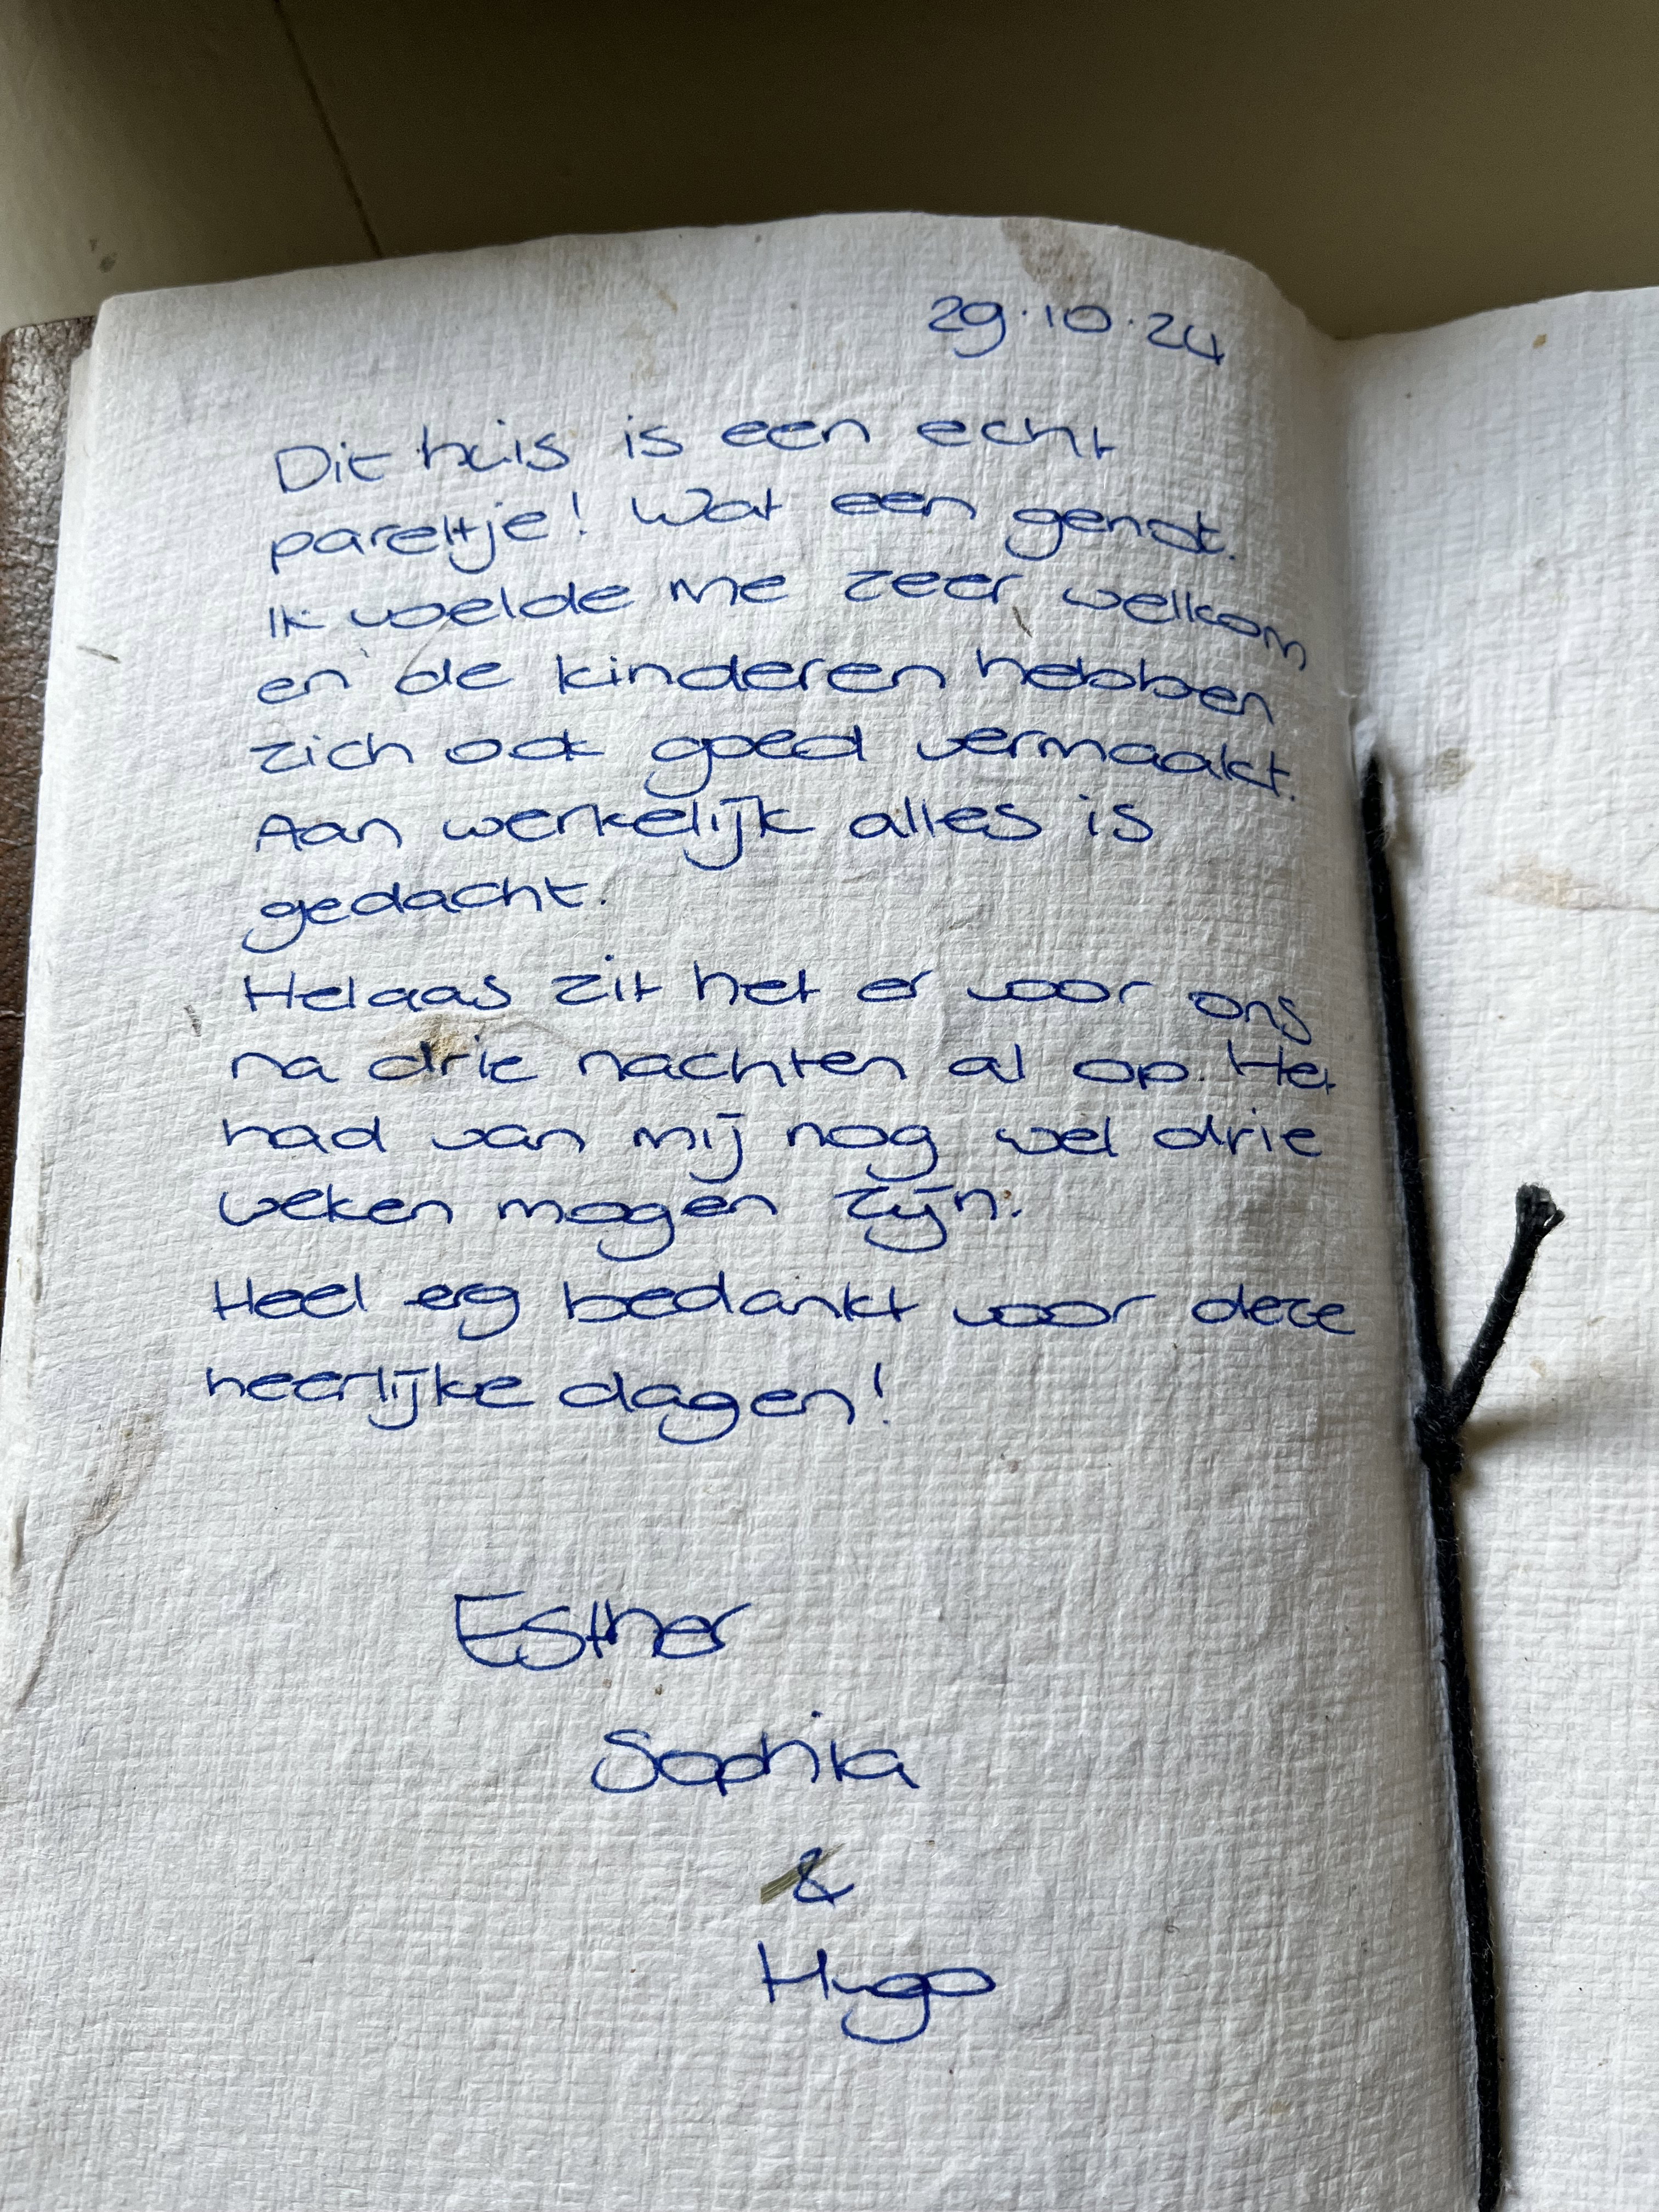 29.10.24
Dit huis is een echt
pareltje! Wat een genot.
Ik voelde me zeer welkom
en de kinderen hebben
zich ook goed vermaakt.
Aan werkelijk alles is
gedacht.
Helaas zit het er voor ons
na drie nachten al op. Het
had van mij nog wel drie
weken mogen zijn.
Heel erg bedankt voor deze
heerlijke dagen!
Esther
Sophia
&
Hugo